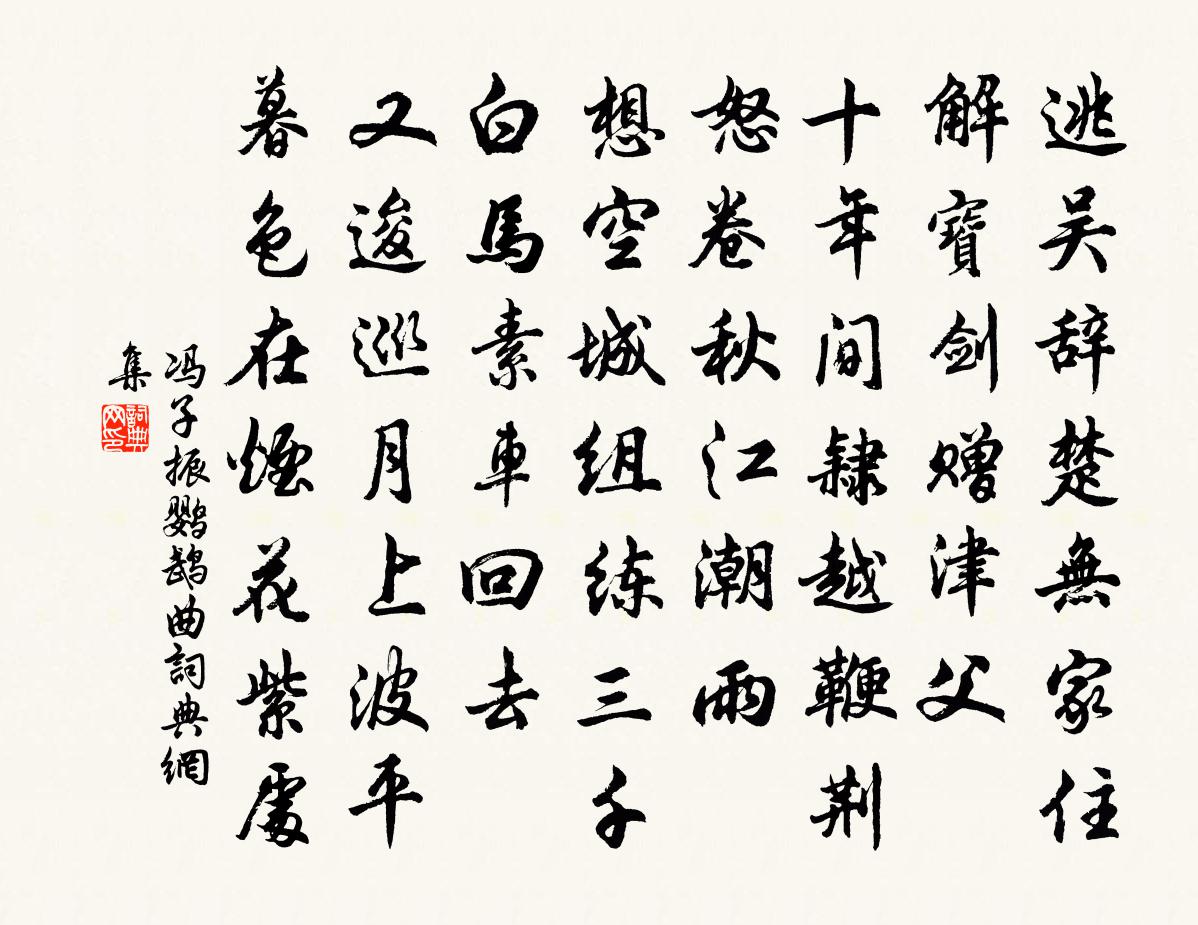 逃吴辞楚無家住
解寳剑赠津父
十年间隸越鞭荆
怒卷秋江潮雨
想空城组练三千
白馬素車回去
又逡巡月上波平
暮色在煙花紫處
冯子振鹦鹉曲詞典網
集
詞典網印